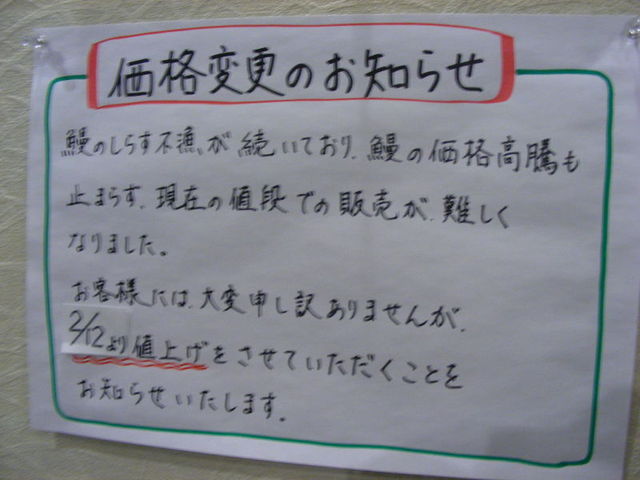 価格変更のお知らせ
鰻のしらす不漁、が続いており、鰻の価格高騰も
止まらず、現在の値段での販売が、難しく
なりました。
お客様には、大変申し訳ありませんが、
2/12より値上げをさせていただくことを
お知らせいたします。